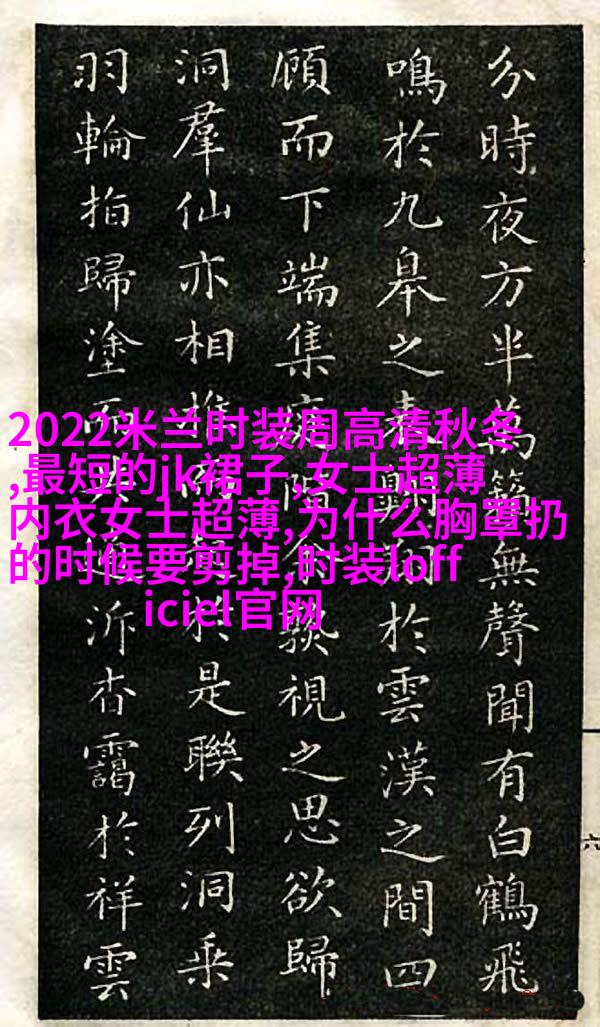 分時夜方半萬籟無聲聞有白鶴飛
鳴於九皋之表翺翔於雲漢之間四
顧而下端集階余駭視之思欲歸
洞羣仙亦相於是聯列洞乘
羽輪拍歸塗而泝杳靄於祥雲
2022米兰时装周高清秋冬
,最短的jk裙子,女士超薄
内衣女士超薄,为什么胸罩扔
的时候要剪掉,时装loff
iciel官网
六